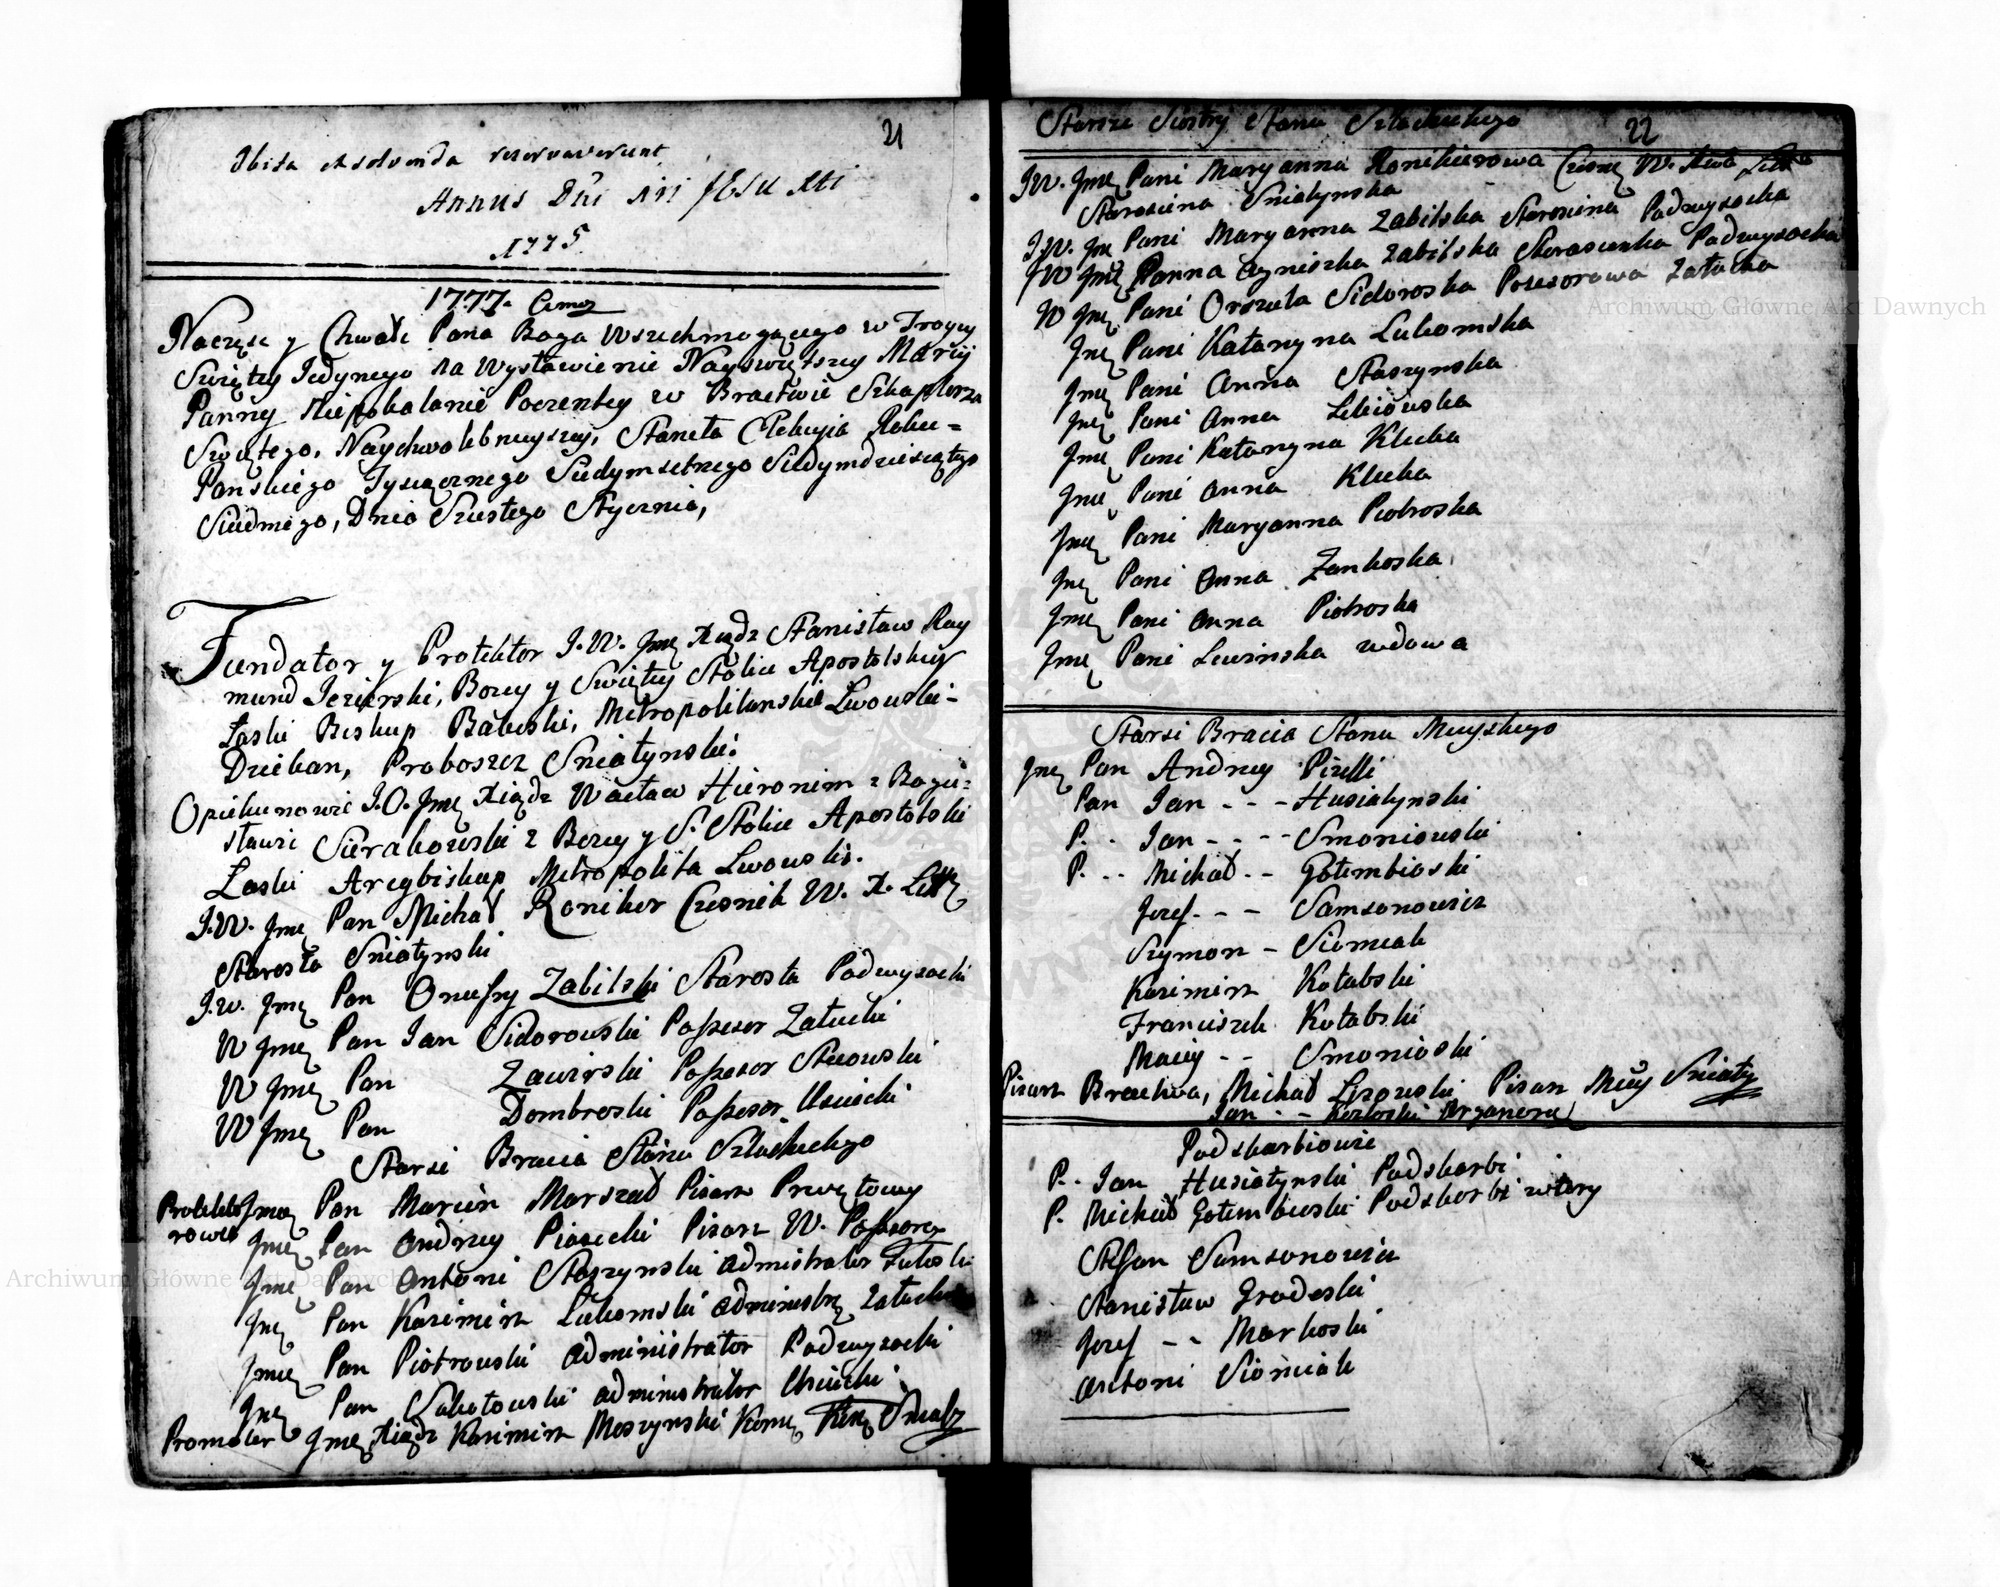 21
Ibita exsolvenda reservaverunt
Annus Dni nri JESU Xti
1775
1777.
Naczesc y Chwałe Pana Boga Wszechmogącego w Troycy
Swiętey Jedynego na Wystawienie Nayswiętszey Maryi
Panny Niepokalanie Poczentey w Bractwie Szkaplerza
Swiętego, Naychwalebnieyszey, Staneła Elekcyia Roku =
Panskiego Tysiącznego Siedymsetnego Siedymdziesiątego
Siudmego, Dnia Szustego Stycznia,
Fundator y Protektor J. W. Jmę Xiądz Stanisław Ray
mund Jezierski, Bozey y Swiętey Stolice Apostolskiey
Łaski Biskup Babeski, Metropolitanskie Lwowski-
Dziekan, Proboszcz Sniatynski.
Opiekunowie J. O. Jmę Xiądz Wacław Hieronim z Bogu=
sławic Sierakowski z Bozey y S. Stolice Apostolski
Łaski Arcybiskup Metropolita Lwowski.
J. W. Jmę Pan Michał Roniker Czesnik W. X. Litt
Starosta Sniatynski
J. W. Jmę Pan Onufry Zabilski Starosta Podwysocki
W Jmę Pan Jan Sidorowski Possesor Załucki
W Jmę Pan Zawirski Possesor Stecowski
W Jmę Pan Dombroski Possesor Uscieski
Starsi Bracia Stanu Szlacheckiego
Protekto Jmę Pan Marcin Marszał Pisarz Prwętowy
rowie Jmę Pan Andrzey Piasecki Pisarz W. Possesora
Jmę Pan Antoni Staszynski Admistrator
Jmę Pan Kazimirz Lubomski Administrę
Jmę Pan Piotrowski Administrator Podwysocki
Jmę Pan Sokołowski Administrator Uscieski
Promotor Jmę Xiądz Kazimirz Moszynski
22
Starsze Siostry Stanu Szlacheckiego
J. W. Jmę Pani Maryanna Ronikierowa Czesnę W. Xwa
Staroscina Sniatynska
J. W. Jmę Pani Maryanna Zabilska Starosina Podwysocka
J W Jmę Panna Agniszka Zabilska Starascianka Podwysocka
W Jmę Pani Orszula Sidoroska Posesorowa Załucka
Jmę Pani Katarzyna Lubomska
Jmę Pani Anna Staszynska
Jmę Pani Anna Lebiowska
Jmę Pani Katarzyna Klecka
Jmę Pani Anna Klecka
Jmę Pani Maryanna Piotroska
Jmę Pani Anna Zankoska
Jmę Pani Anna Piotroska
Jmę Pani Lewinska wdowa
Starsi Bracia Stanu Mieyskiego
Jmę Pan Andrzey Pizelli
Pan Jan - - - Husiatynski
P. . Jan - - - - Smoniewski
P. . . Michał - - Gołembioski
Jozef - - - Samsonowicz
Szymon - Siomiak
Kazimirz Kołabski
Franciszek Kołabski
Maciey - - Smonioski
Pisarz Bractwa, Michał Lisowski Pisarz Miey Sniaty
Jan - - Kozłoski Arganera
Podskarbiowie
P. . Jan Husiatynski Podskarbi
P. Michał Gołembieski Podskarbi wtory
Stefan Samsonowicz
Stanisław Grodeski
Jozef - - Markoski
Antoni Siomiak
Archiwum Główne Akt Dawnych
Archiwum Główne Akt Dawnych